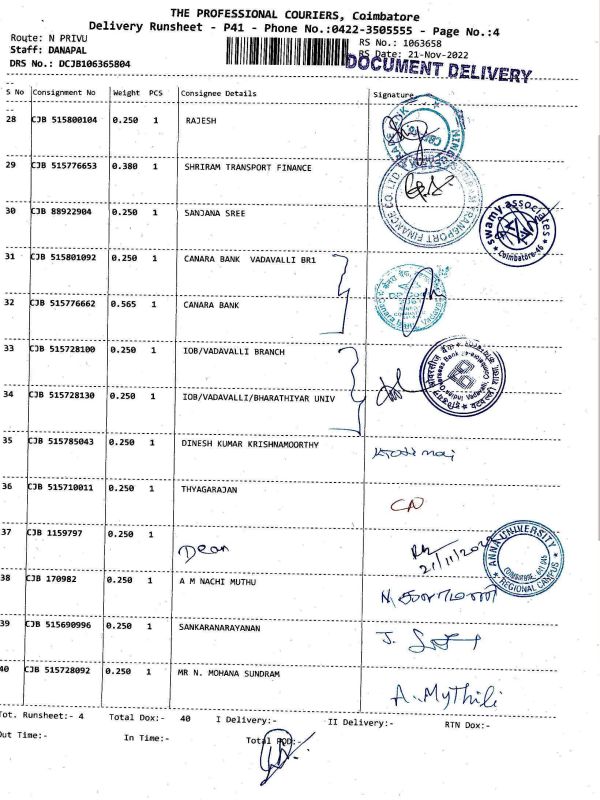 THE PROFESSIONAL COURIERS, Coimbatore
Delivery Runsheet - P41 - Phone No.:0422-3505555 - Page No.:4
Route: N PRIVU
RS No.: 1063658
Staff: DANAPAL
RS Date: 21-Nov-2022
DRS No.: DCJB106365804
DOCUMENT DELIVERY
S No Consignment No Weight PCS Consignee Details Signature
28 CJB 515800104 0.250 1 RAJESH
29 CJB 515776653 0.380 1 SHRIRAM TRANSPORT FINANCE
TRANSPORT FINANCE CO. LTD.
30 CJB 88922904 0.250 1 SANJANA SREE
swamy associates
Coimbatore-46
31 CJB 515801092 0.250 1 CANARA BANK VADAVALLI BR1
32 CJB 515776662 0.565 1 CANARA BANK
33 CJB 515728100 0.250 1 IOB/VADAVALLI BRANCH
34 CJB 515728130 0.250 1 IOB/VADAVALLI/BHARATHIYAR UNIV
35 CJB 515785043 0.250 1 DINESH KUMAR KRISHNAMOORTHY
36 CJB 515710011 0.250 1 THYAGARAJAN
CN
37 CJB 1159797 0.250 1 Dean
21/11/2022
ANNA UNIVERSITY
REGIONAL CAMPUS
38 CJB 170982 0.250 1 A M NACHI MUTHU
39 CJB 515690996 0.250 1 SANKARANARAYANAN J.
40 CJB 515728092 0.250 1 MR N. MOHANA SUNDRAM A. Mythili
Tot. Runsheet:- 4 Total Dox:- 40 I Delivery:- II Delivery:- RTN Dox:-
Out Time:- In Time:- Total POD:-